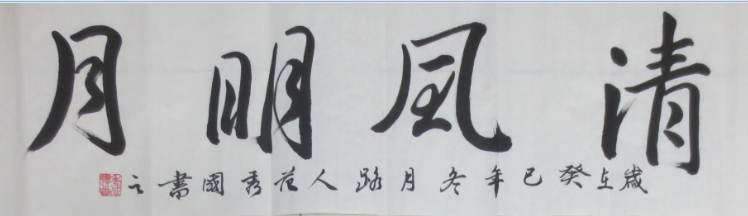 清風明月
歲在癸巳年冬月路人范秀國書之